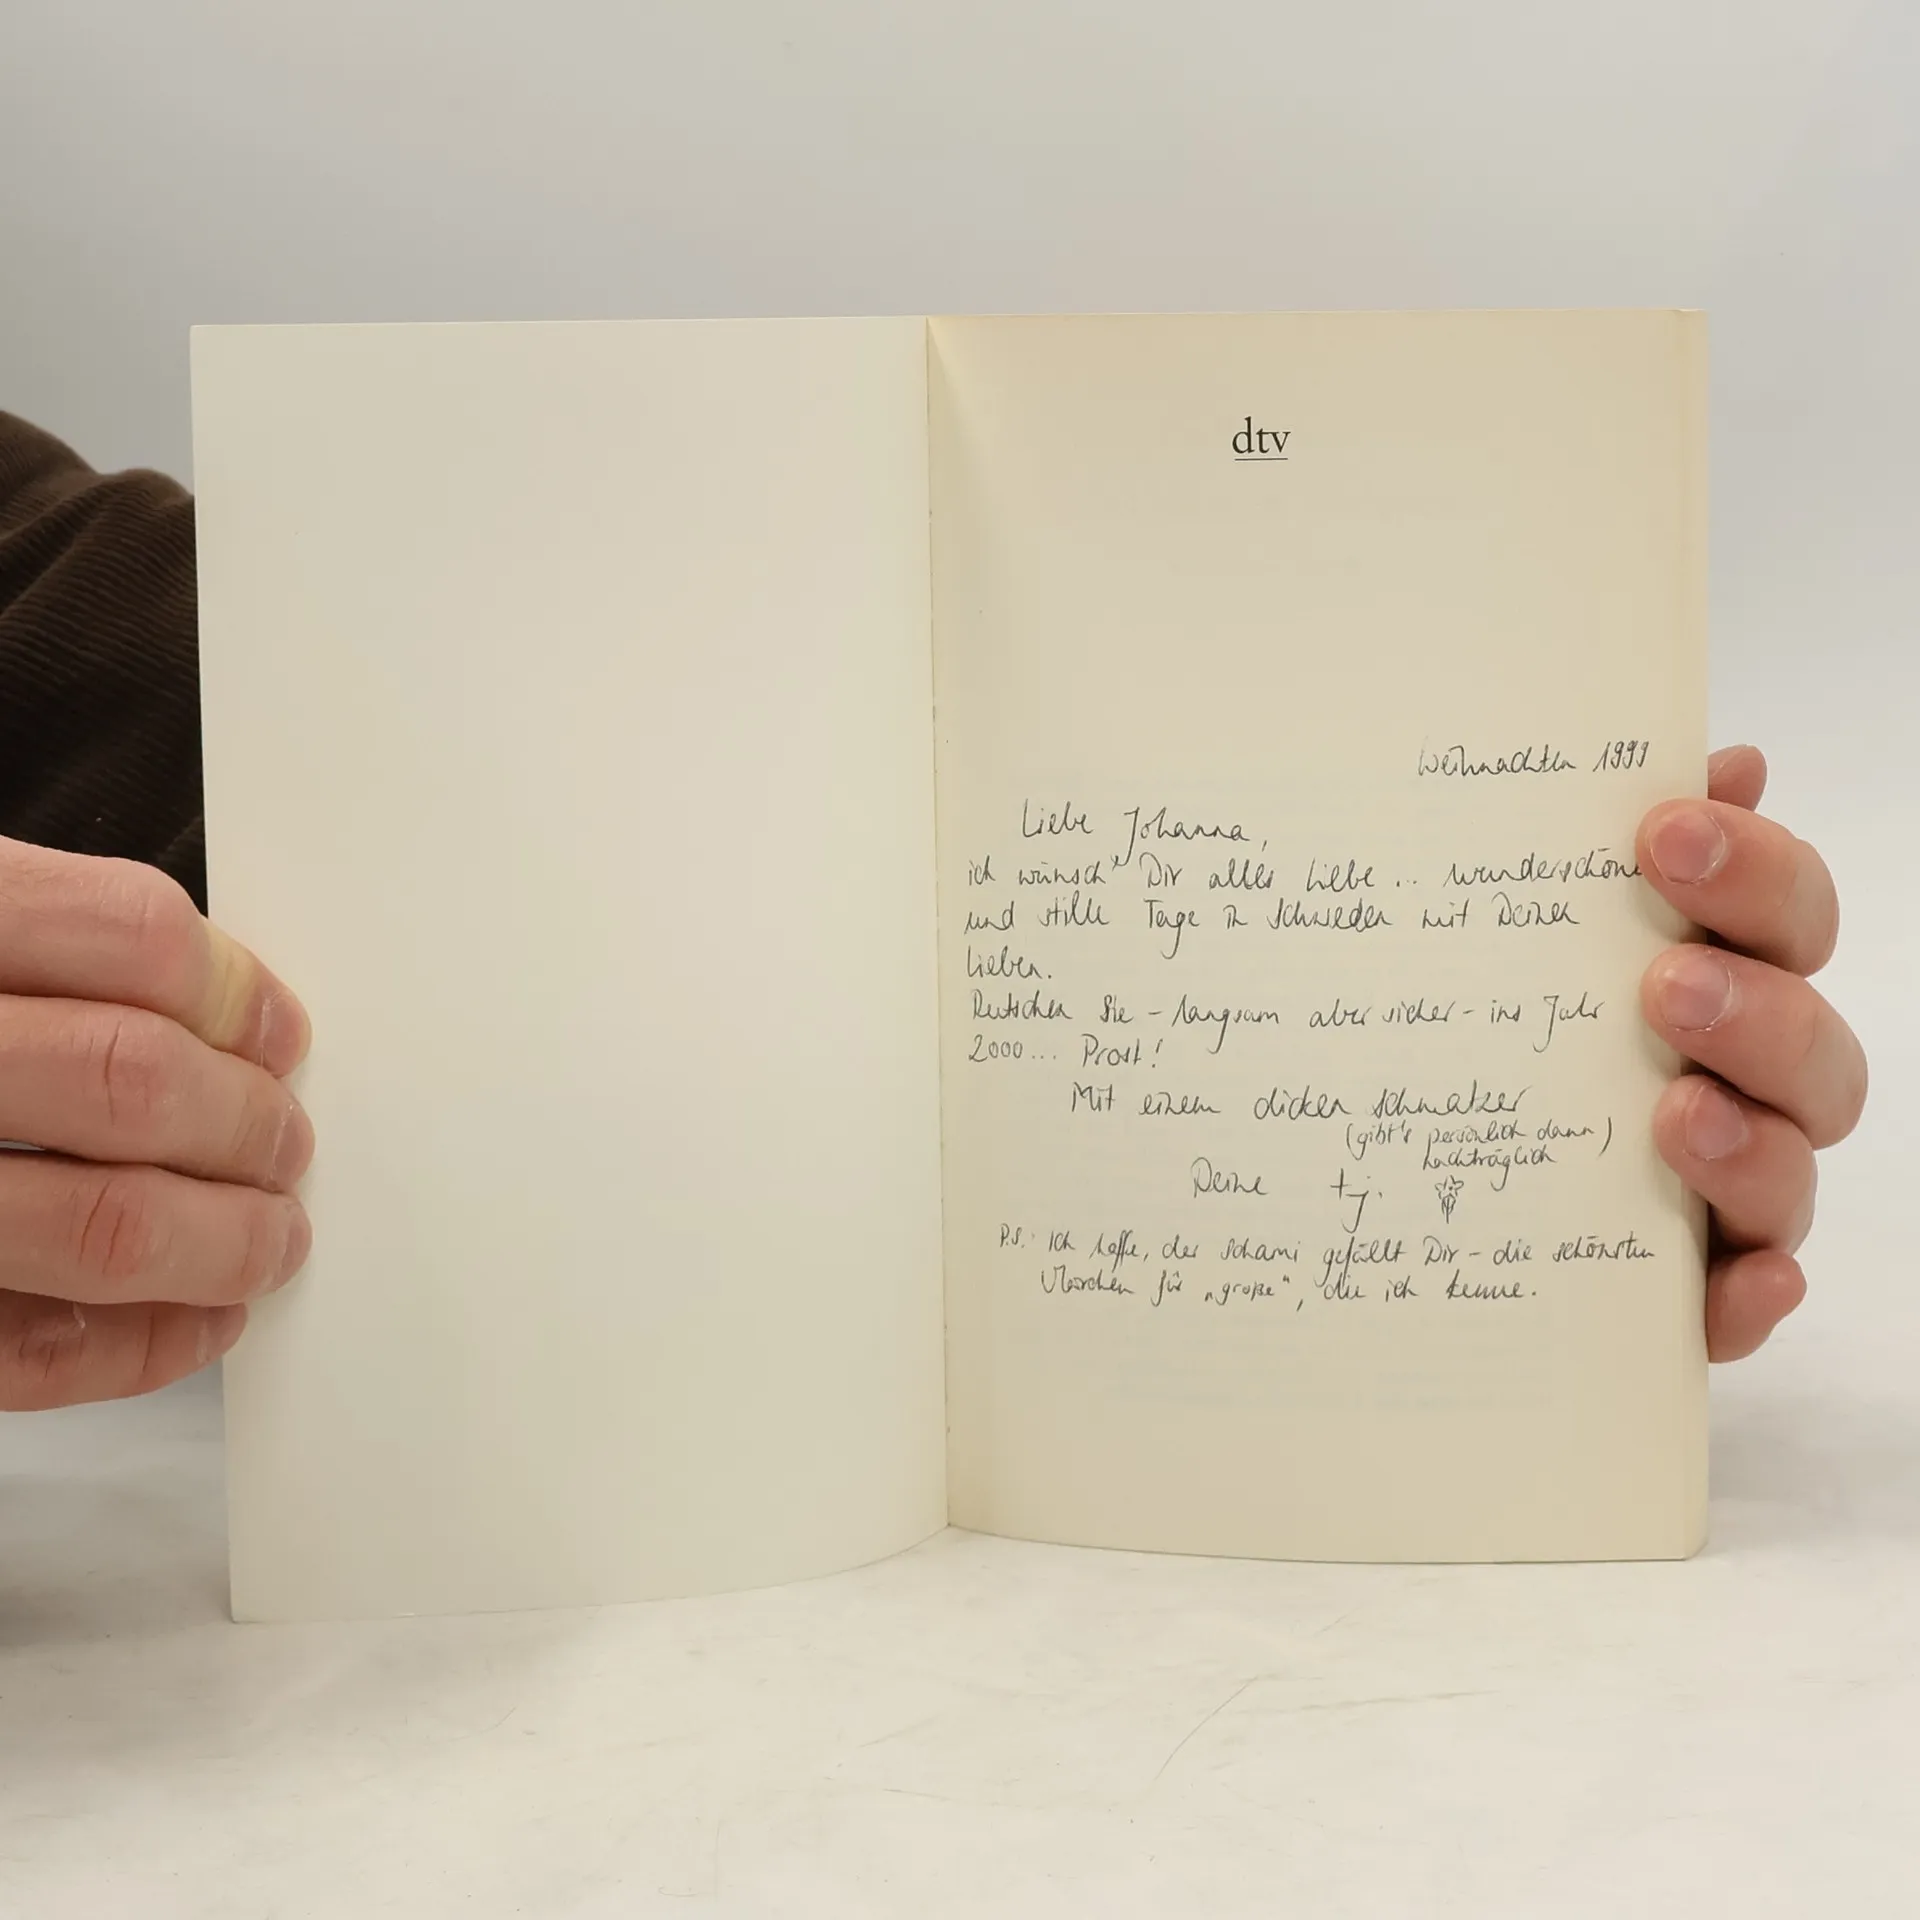 dtv
Weihnachten 1999
Liebe Johanna,
ich wünsch' Dir alles Liebe ... wunderschöne
und stille Tage in Schweden mit Deinen
Lieben.
Rutschen Sie - langsam aber sicher - ins Jahr
2000 ... Prost!
Mit einem dicken Schmatzer
(gibt's persönlich dann)
nachträglich
Deine
P.S.: Ich hoffe, der Schami gefällt Dir - die schönsten
Märchen für „große“, die ich kenne.